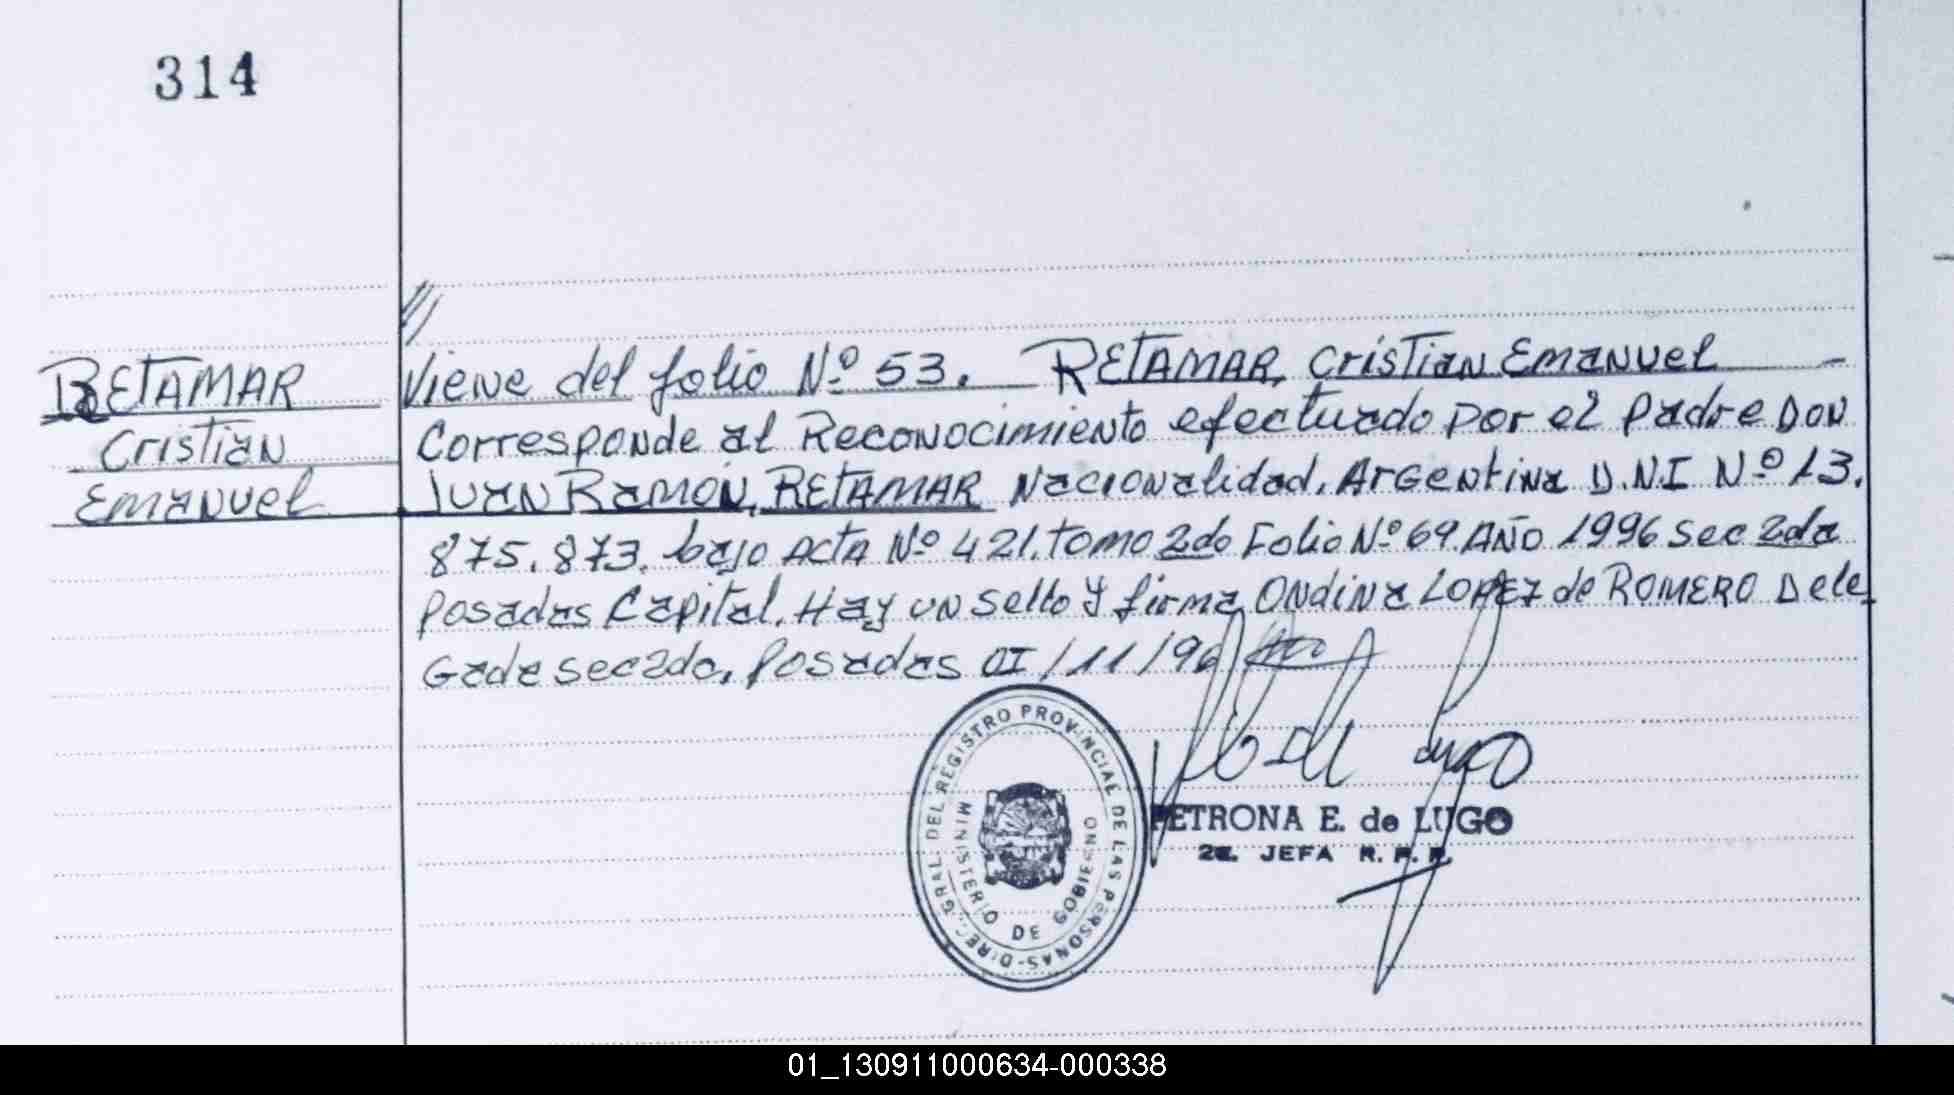 314
RETAMAR
Cristian
Emanuel
//
Viene del folio Nº 53. RETAMAR, Cristian Emanuel
Corresponde al Reconocimiento efectuado por el padre Don
Juan Ramón, RETAMAR Nacionalidad, Argentina D.N.I Nº 13.
875.873. bajo Acta Nº 421. tomo 2do Folio Nº 69. AÑO 1996 sec 2da
Posadas Capital. Hay un sello y firma Ondina LOPEZ de ROMERO Dele
Gada sec 2da. Posadas 01/11/96
DIREC. GRAL. DEL REGISTRO PROVINCIAL DE LAS PERSONAS-
MINISTERIO DE GOBIERNO
PETRONA E. de LUGO
2a. JEFA R. P. P.
01_130911000634-000338